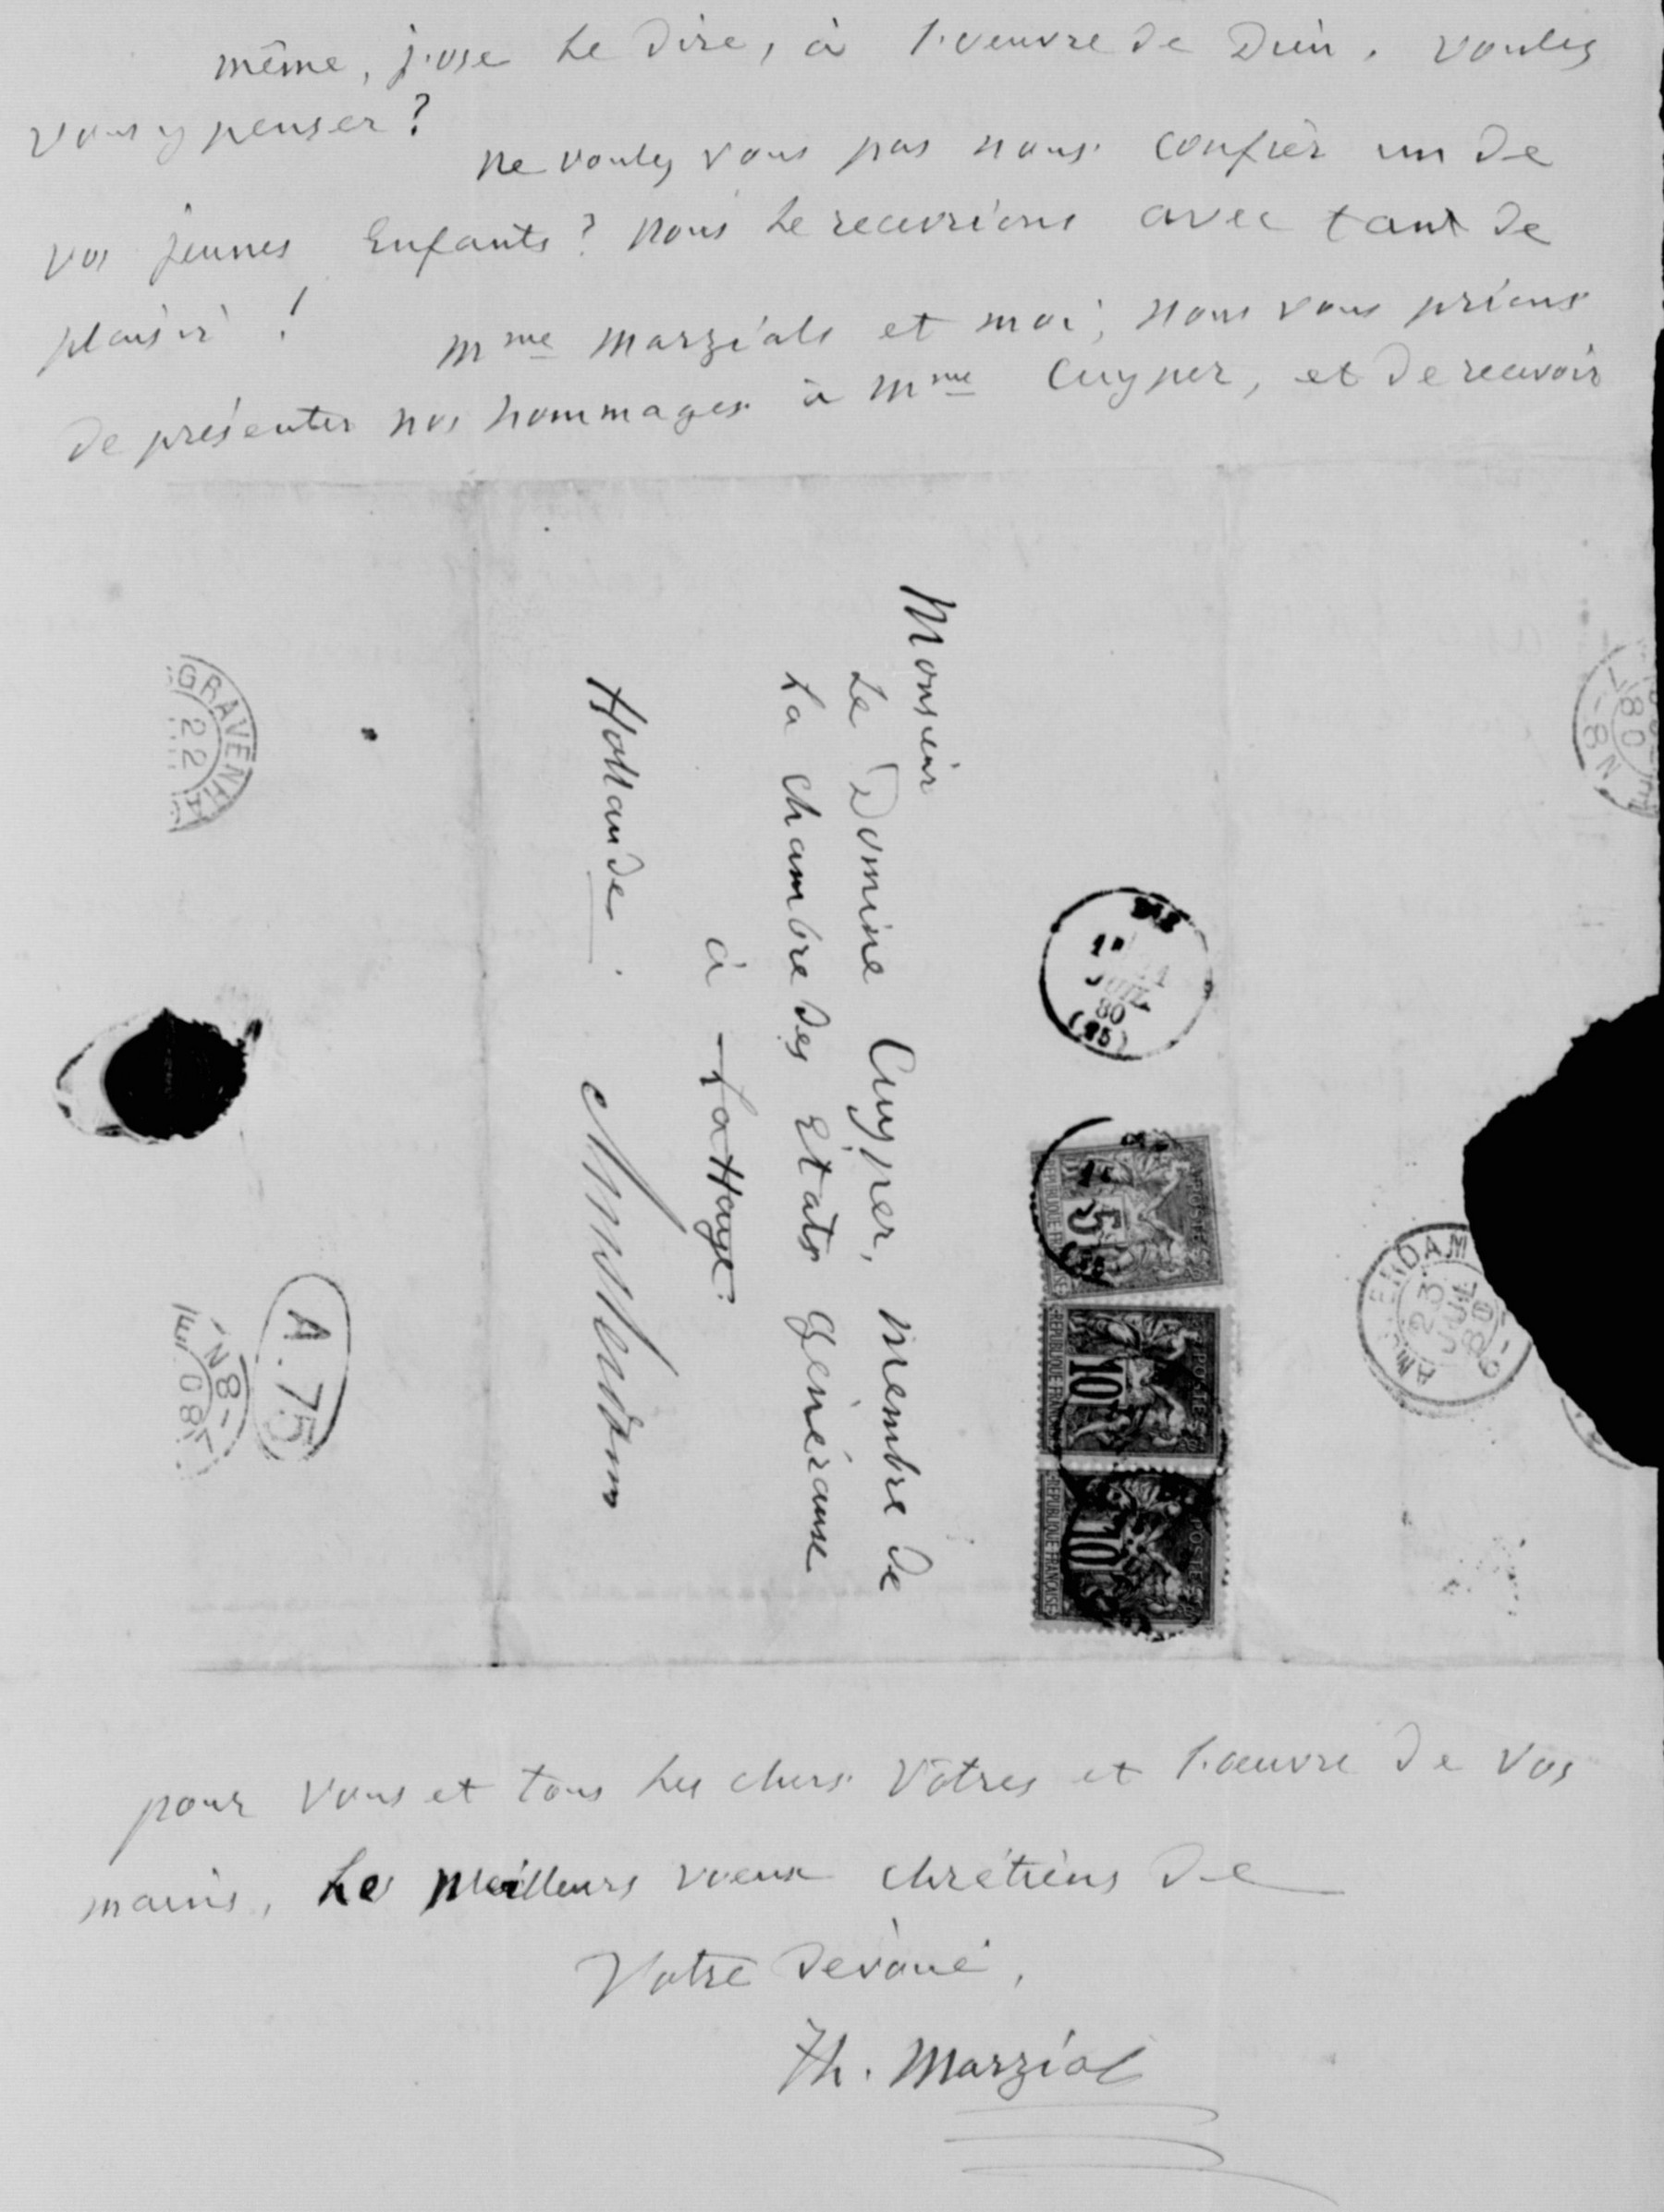 même, j'ose le dire, à l'oeuvre de Dieu. voulez
vous y penser?
Ne voulez vous pas nous confier un de
vos jeunes Enfants? nous le recevrions avec tant de
plaisir!
Mme Marzials et moi, nous vous prions
de présenter nos hommages à Mme Cuyper, et de recevoir
Monsieur
Le Domine Cuyper, membre de
La chambre des Etats Généraux
à La Haye.
Hollande. Amsterdam
GRAVENHA
22
80
8-N
JUIL
80
(25)
POSTES
5
REPUBLIQUE FR
POSTES
10
REPUBLIQUE FRANC
POSTES
10
REPUBLIQUE FRANCAISE
AM ERDAM
23
A.75
8N
80
pour vous et tous les chers vôtres et l'oeuvre de vos
mains, Les meilleurs voeux chrétiens de
Votre dévoué,
Th. Marzials